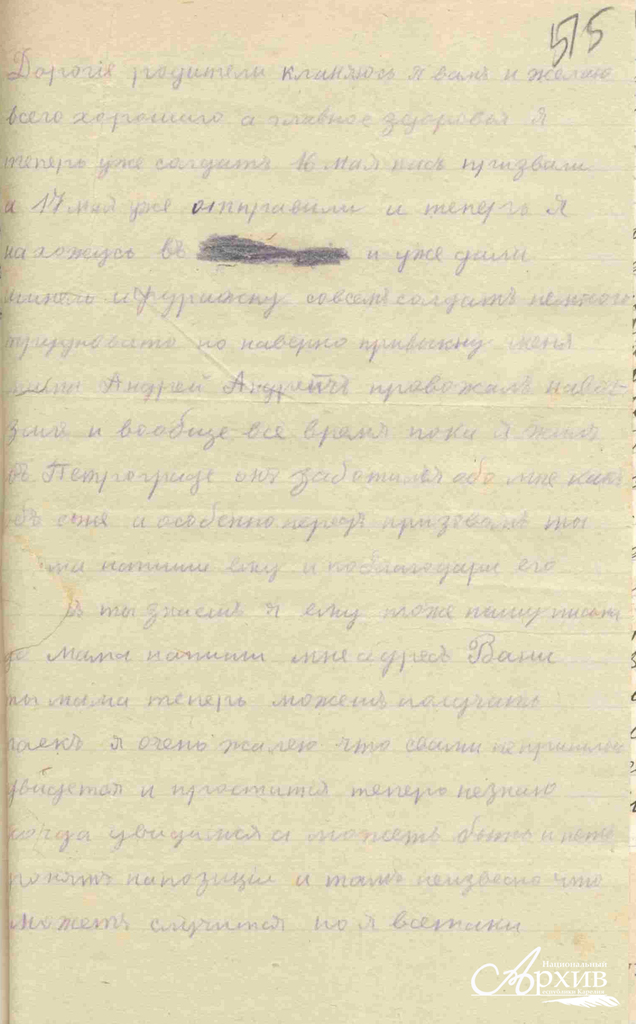 515
Дорогіе родители кланяюсь я вамъ и желаю
всего хорошаго а главное здоровья я
теперь уже солдатъ 16 мая насъ призвали
а 17 мая уже отправили и теперь я
нахожусь въ и уже дали
шинель и фуражку совсемъ солдатъ немного
трудновато но наверно привыкну меня
Андрей Андреичъ провожалъ на вок-
залъ и вообще все время пока я жилъ
въ Петрограде онъ заботился обо мне какъ
объ сыне и особенно передъ призывомъ ты
напиши ему и поблагодари его
ты знаешъ я ему тоже пишу письма
мама напиши мне адресъ Вани
ты мама теперь можешъ получать
паекъ я очень жалею что свами не пришлось
увидется и простится теперь незнаю
когда увидимся а можетъ быть и нетъ
погонятъ на позиціи и тамъ неизвесно что
можетъ случится но я всетаки
Национальный
Архив
республики Карелия